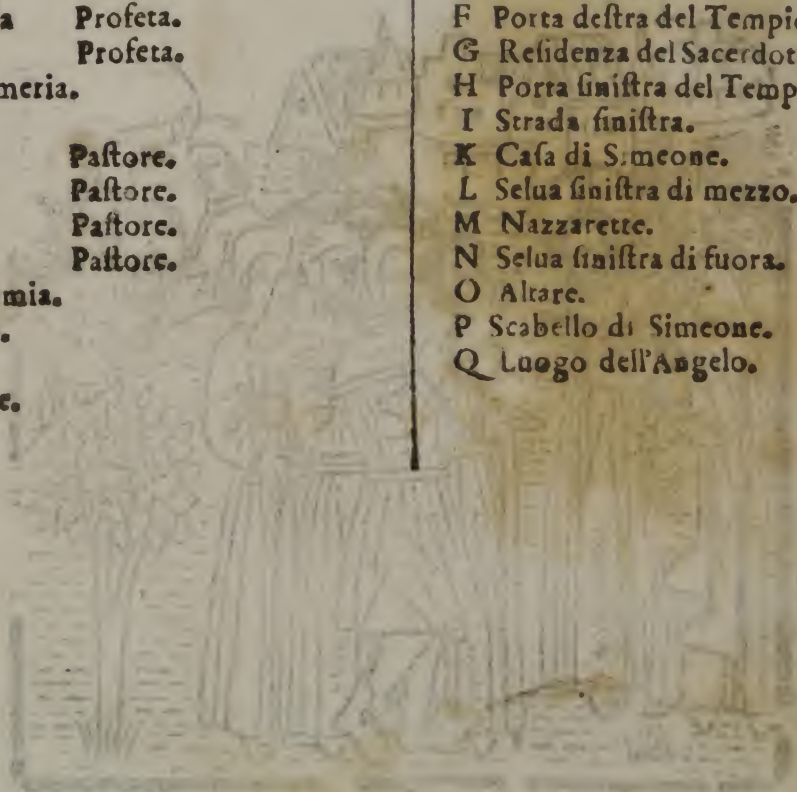 a Profeta.
Profeta.
meria.
Paſtore.
Paſtore.
Paſtore.
Paſtore.
mia.
e.
F Porta deſtra del Tempio
G Reſidenza del Sacerdot
H Porta ſiniſtra del Temp
I Strada ſiniſtra.
K Caſa di Simeone.
L Selua ſiniſtra di mezzo.
M Nazzarette.
N Selua ſiniſtra di fuora.
O Altare.
P Scabello di Simeone.
Q Luogo dell'Angelo.